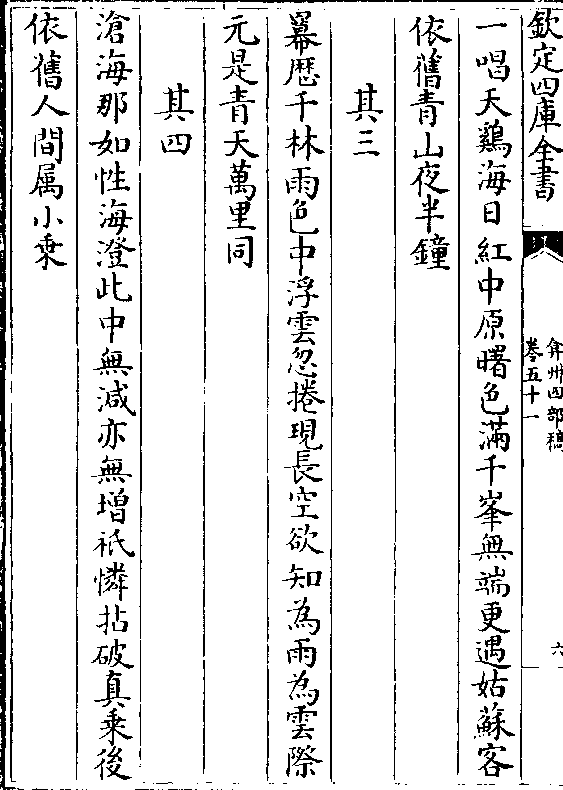 欽定四庫全書
弇州四部稿
卷五十一
六
一唱天鷄海日紅中原曙色滿千峯無端更遇姑蘇客
依舊青山夜半鐘
其三
羃歴千林雨色中浮雲忽捲現長空欲知為雨為雲際
元是青天萬里同
其四
滄海那如性海澄此中無減亦無增祇憐拈破真乗後
依舊人間属小乗